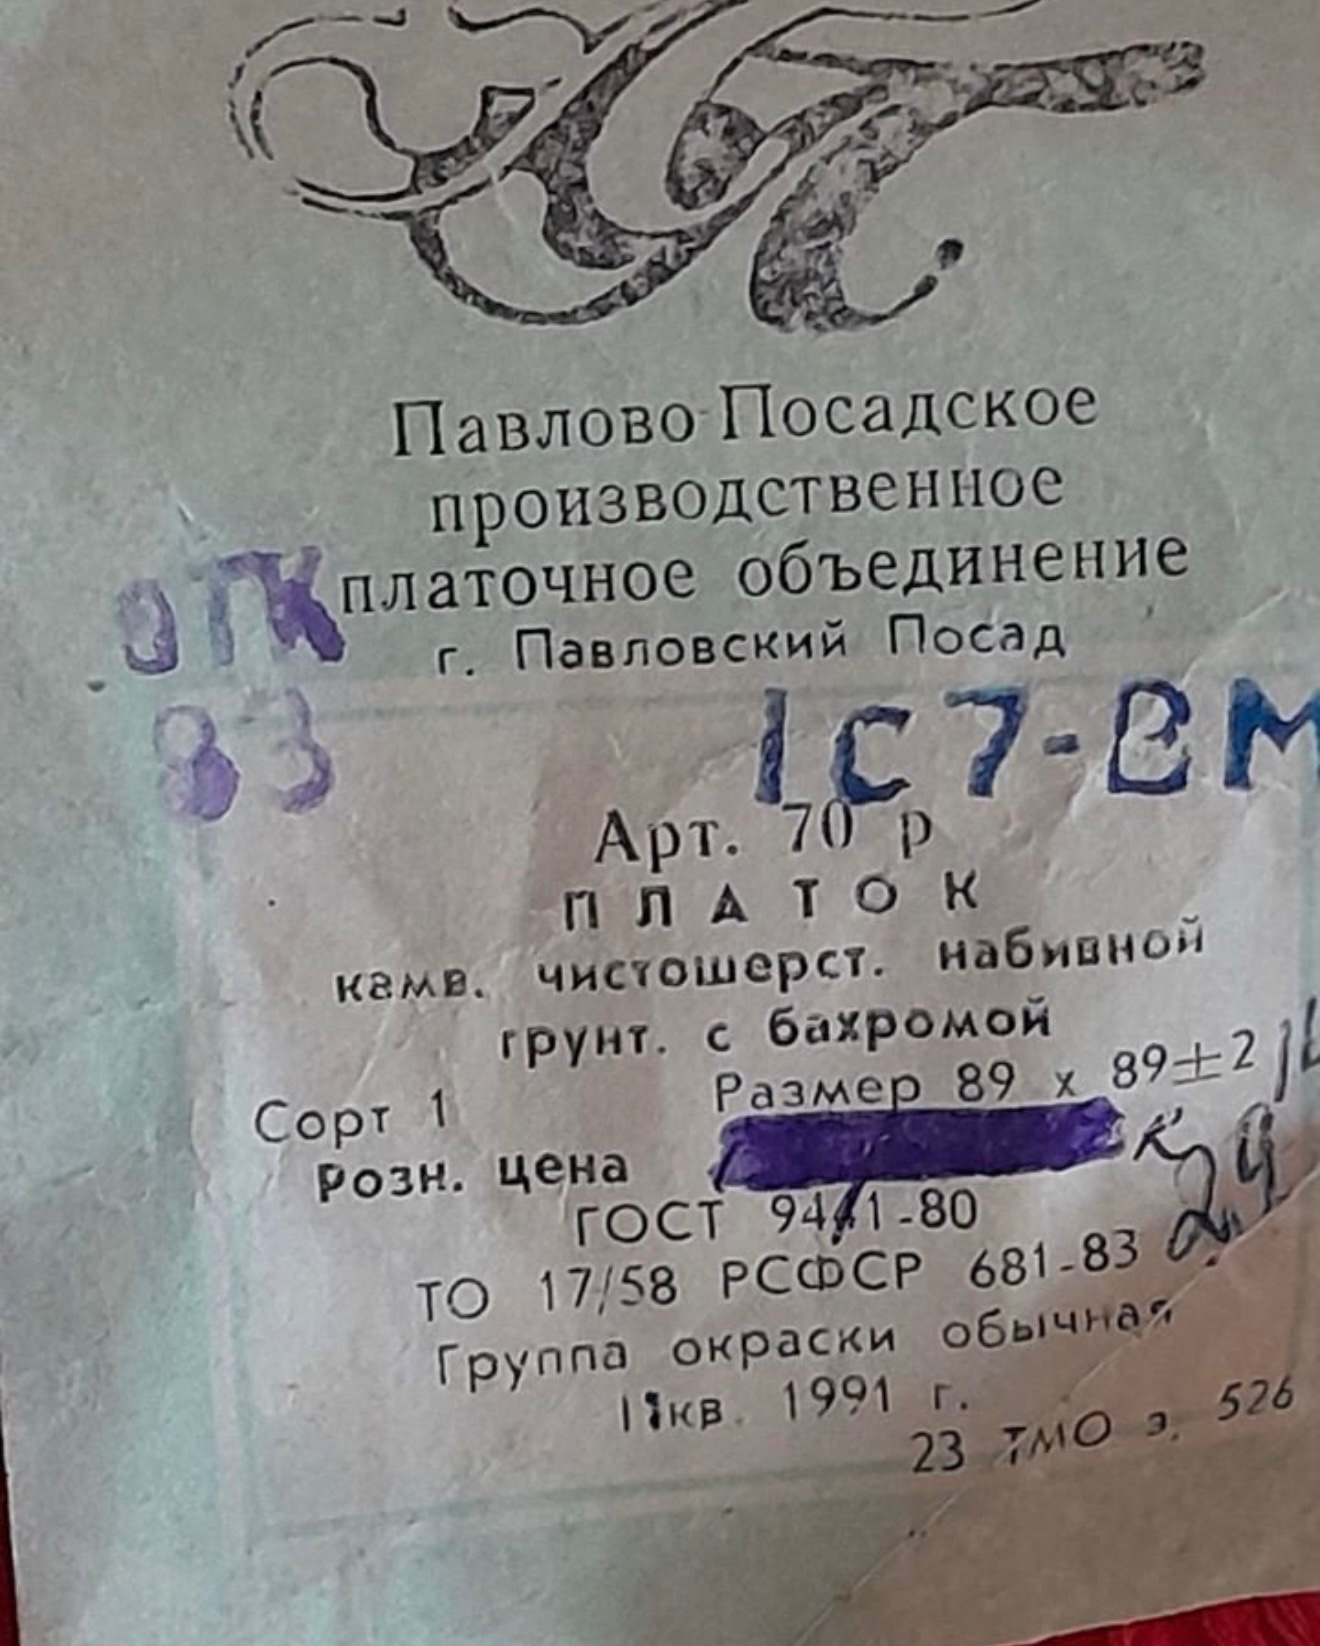 Павлово-Посадское
производственное
платочное объединение
г. Павловский Посад
ОТК
83
1С7-ВМ
Арт. 70 р
ПЛАТОК
камв. чистошерст. набивной
грунт. с бахромой
Сорт 1 Размер 89 х 89±2
Розн. цена
ГОСТ 9441-80
ТО 17/58 РСФСР 681-83
Группа окраски обычная
II кв. 1991 г.
23 ТМО з. 526